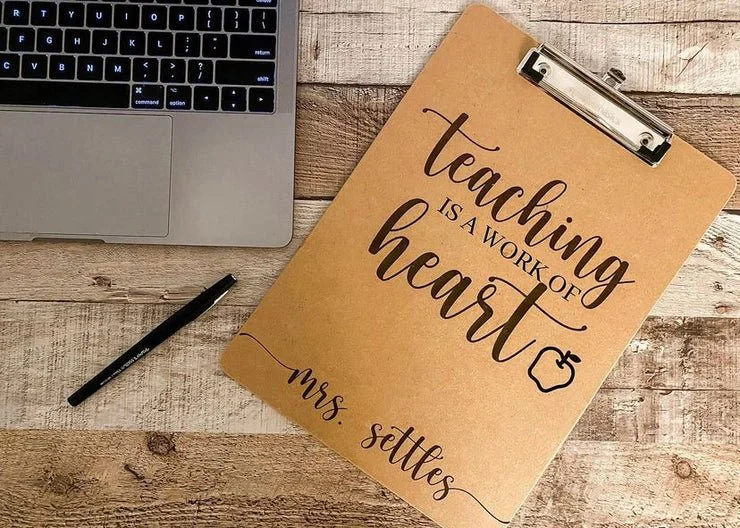 R T Y U I O P { [ } ]
F G H J K L : ; " ' return
C V B N M < , > . ? / shift
⌘ command option
teaching
IS A WORK OF
heart
mrs. settles